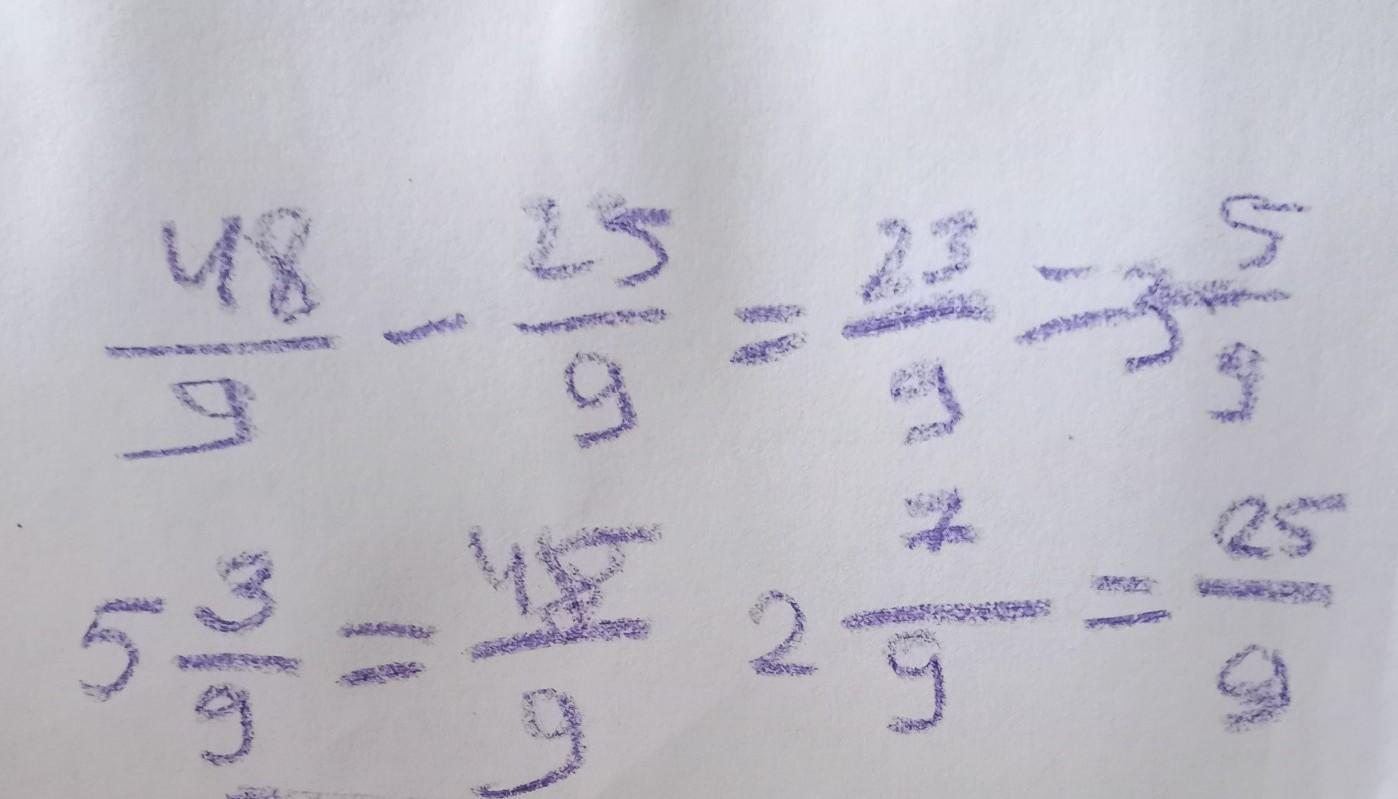 48/9 - 25/9 = 23/9 = 3 5/9
5 3/9 = 48/9 2 7/9 = 25/9